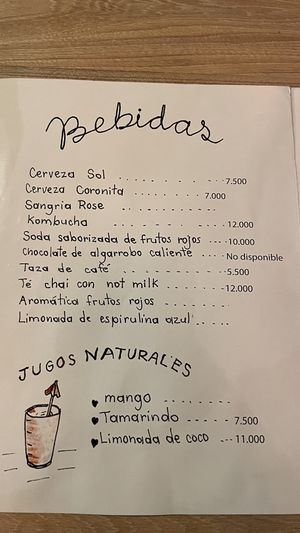 Bebidas
Cerveza Sol ............ 7.500
Cerveza Coronita ......... 7.000
Sangria Rose ............
Kombucha ............ 12.000
Soda saborizada de frutos rojos ... 10.000
Chocolate de algarrobo caliente ... No disponible
Taza de café ...... 5.500
Té chai con not milk ...... 12.000
Aromática frutos rojos .......
Limonada de espirulina azul .....
JUGOS NATURALES
mango ........
Tamarindo ..... 7.500
Limonada de coco ... 11.000